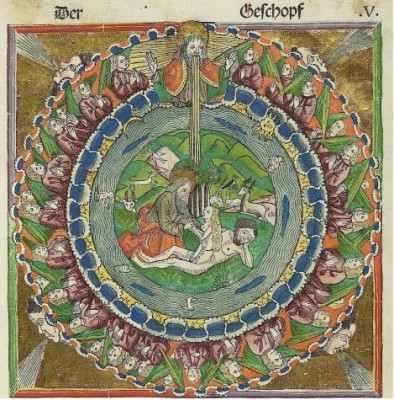 Der Geschopf .V.